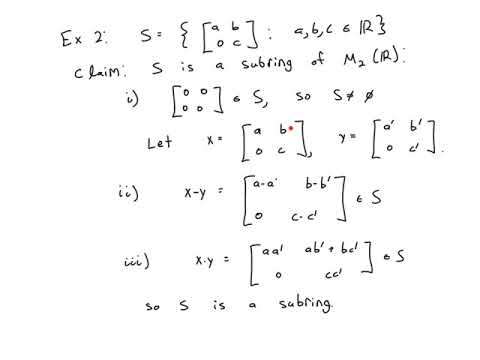 Ex 2: S = { [a b; 0 c] : a, b, c ∈ ℝ }
Claim: S is a subring of M₂(ℝ):
i) [0 0; 0 0] ∈ S, so S ≠ ∅
Let x = [a b; 0 c], y = [a' b'; 0 c'].
ii) x-y = [a-a' b-b'; 0 c-c'] ∈ S
iii) x·y = [aa' ab'+bc'; 0 cc'] ∈ S
so S is a subring.